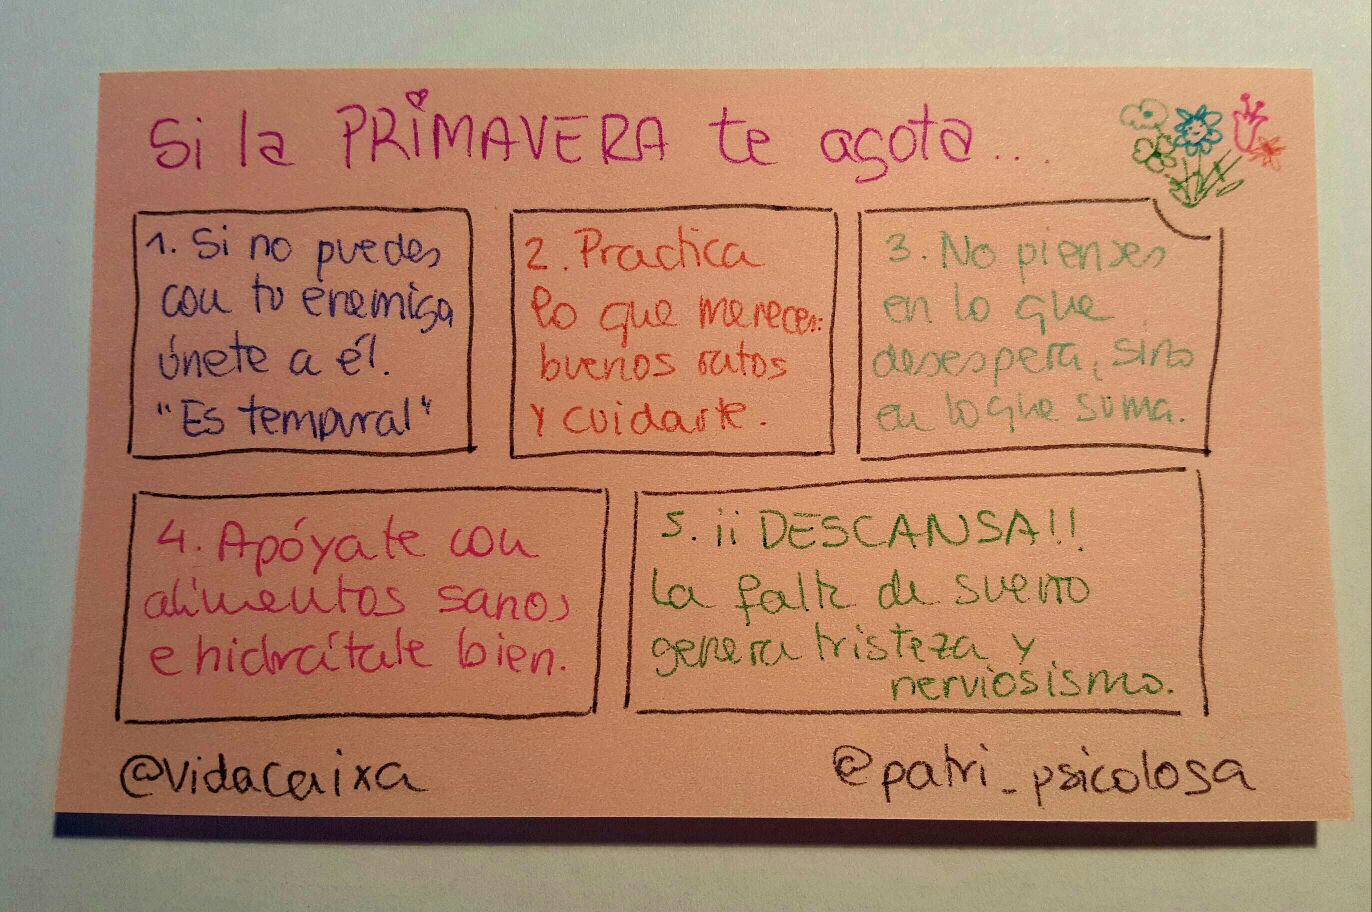 Si la PRIMAVERA te agota...
1. Si no puedes
con tu enemigo
únete a él.
"Es temporal"
2. Practica
lo que mereces:
buenos ratos
y cuidarte.
3. No pienses
en lo que
desespera, sino
en lo que suma.
4. Apóyate con
alimentos sanos
e hidrátate bien.
5. ¡¡DESCANSA!!
La falta de sueño
genera tristeza y
nerviosismo.
@Vidacaixa
@patri_psicologa